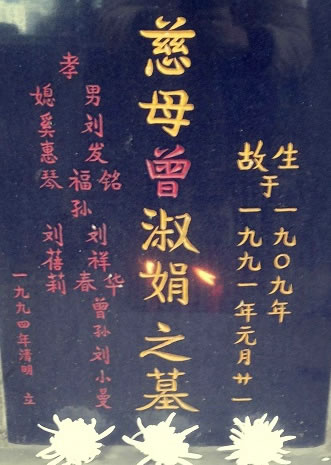 生
故
于
一九〇九年
一九九一年元月廿一
慈母曾淑娟之墓
孝
男刘发铭
福
媳奚惠琴
孙刘祥华
春
刘蓓莉
曾孙刘小曼
一九九四年清明 立